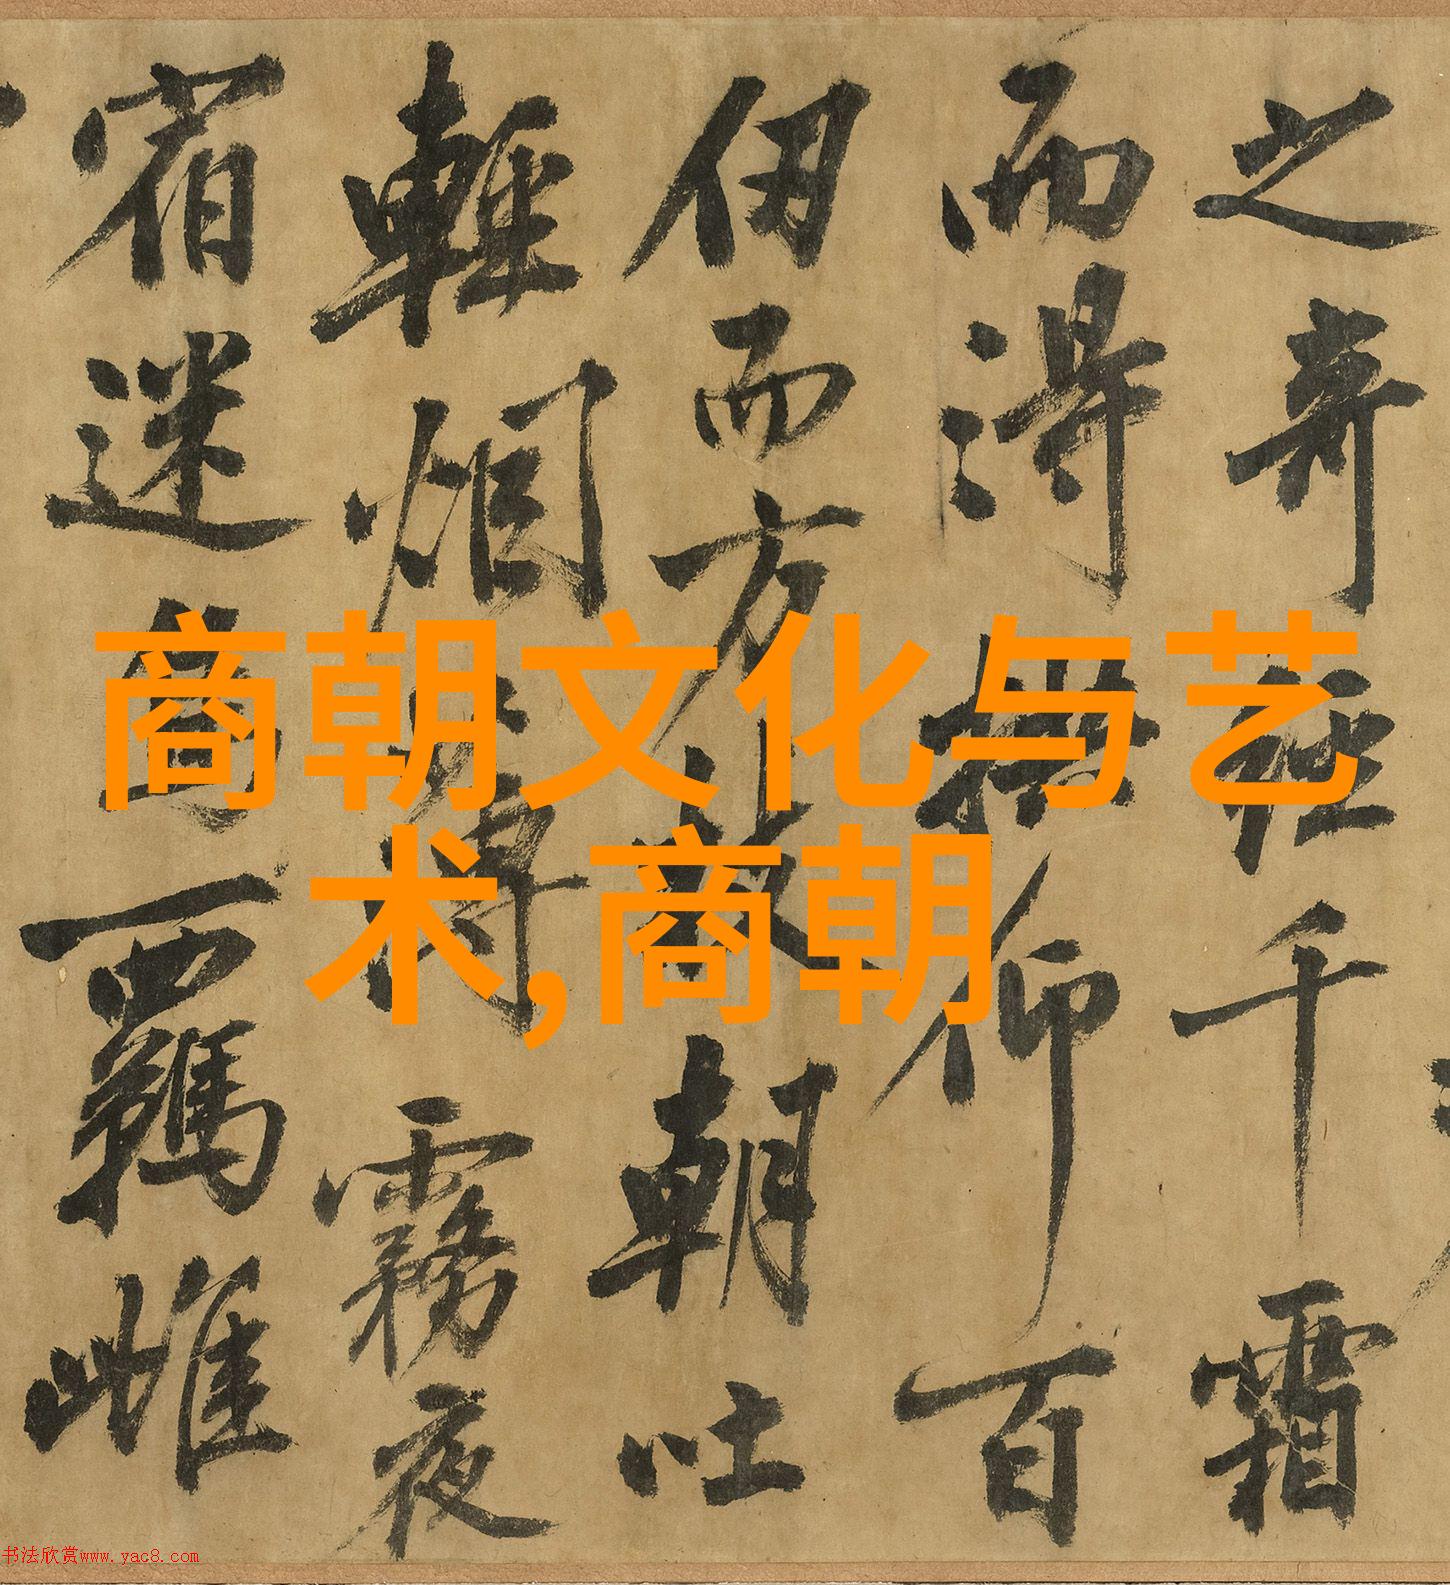 商朝文化与艺
术,商朝
之奇千霜
而得撫仰百
伊而方朝吐
輕烟霧夜
宿迷鳥羈雌
书法欣赏www.yac8.com